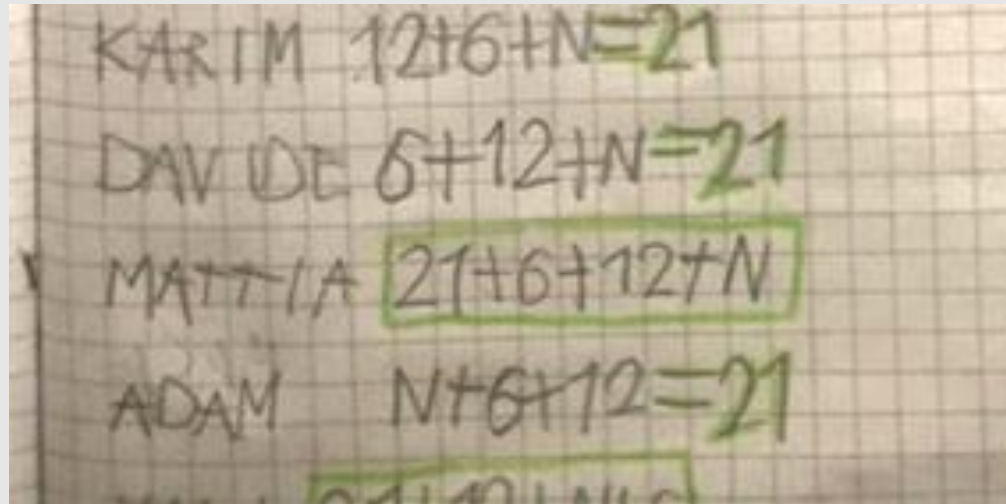 KARIM 12+6+N=21
DAVIDE 6+12+N=21
MATTIA 21+6+12+N
ADAM N+6+12=21